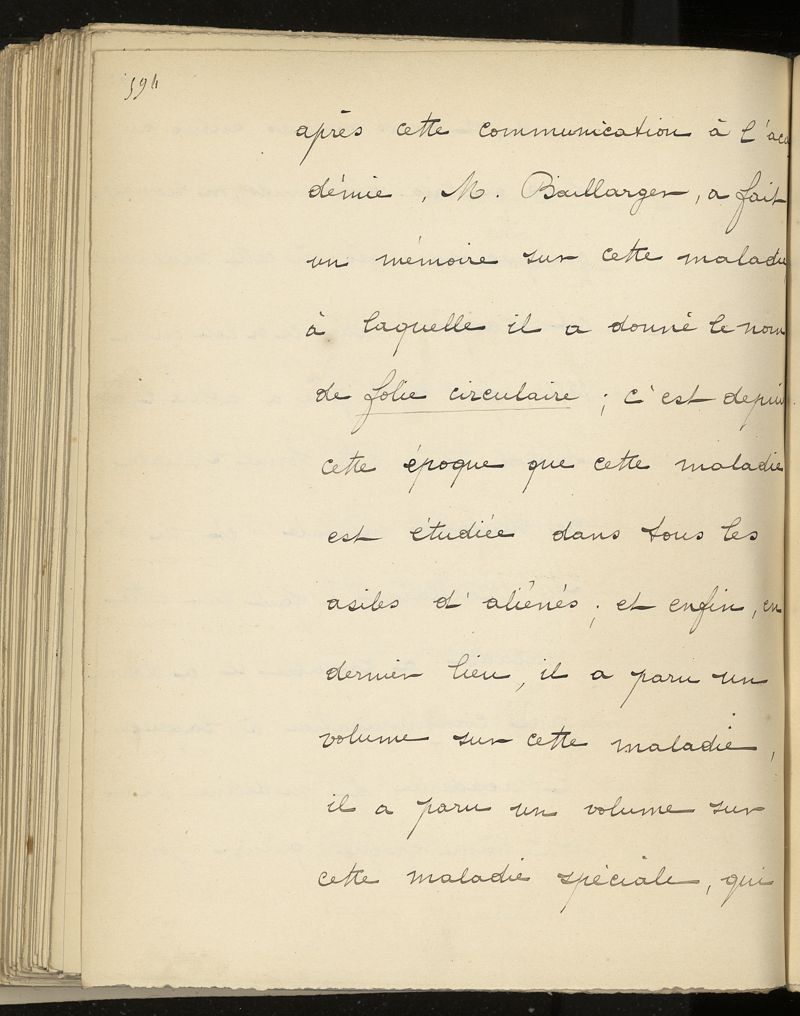 594
après cette communication à l'aca
démie, M. Baillarger, a fait
un mémoire sur cette maladie
à laquelle il a donné le nom
de folie circulaire ; c'est depuis
cette époque que cette maladie
est étudiée dans tous les
asiles d'aliénés ; et enfin, en
dernier lieu, il a paru un
volume sur cette maladie,
il a paru un volume sur
cette maladie spéciale, qui